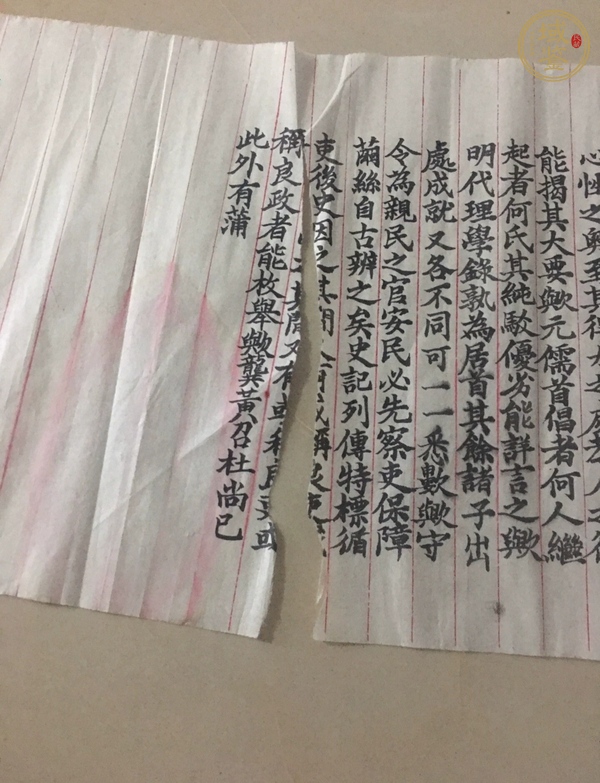 心性之奧至其
能揭其大要歟元儒首倡者何人繼
起者何氏其純駁優劣能詳言之歟
明代理學錄孰為居首其餘諸子出
處成就又各不同可一一悉數歟守
令為親民之官安民必先察吏保障
繭絲自古辨之矣史記列傳特標循
吏後史因之其間
或稱良吏或
稱良政者能枚舉歟龔黃召杜尚已
此外有蒲